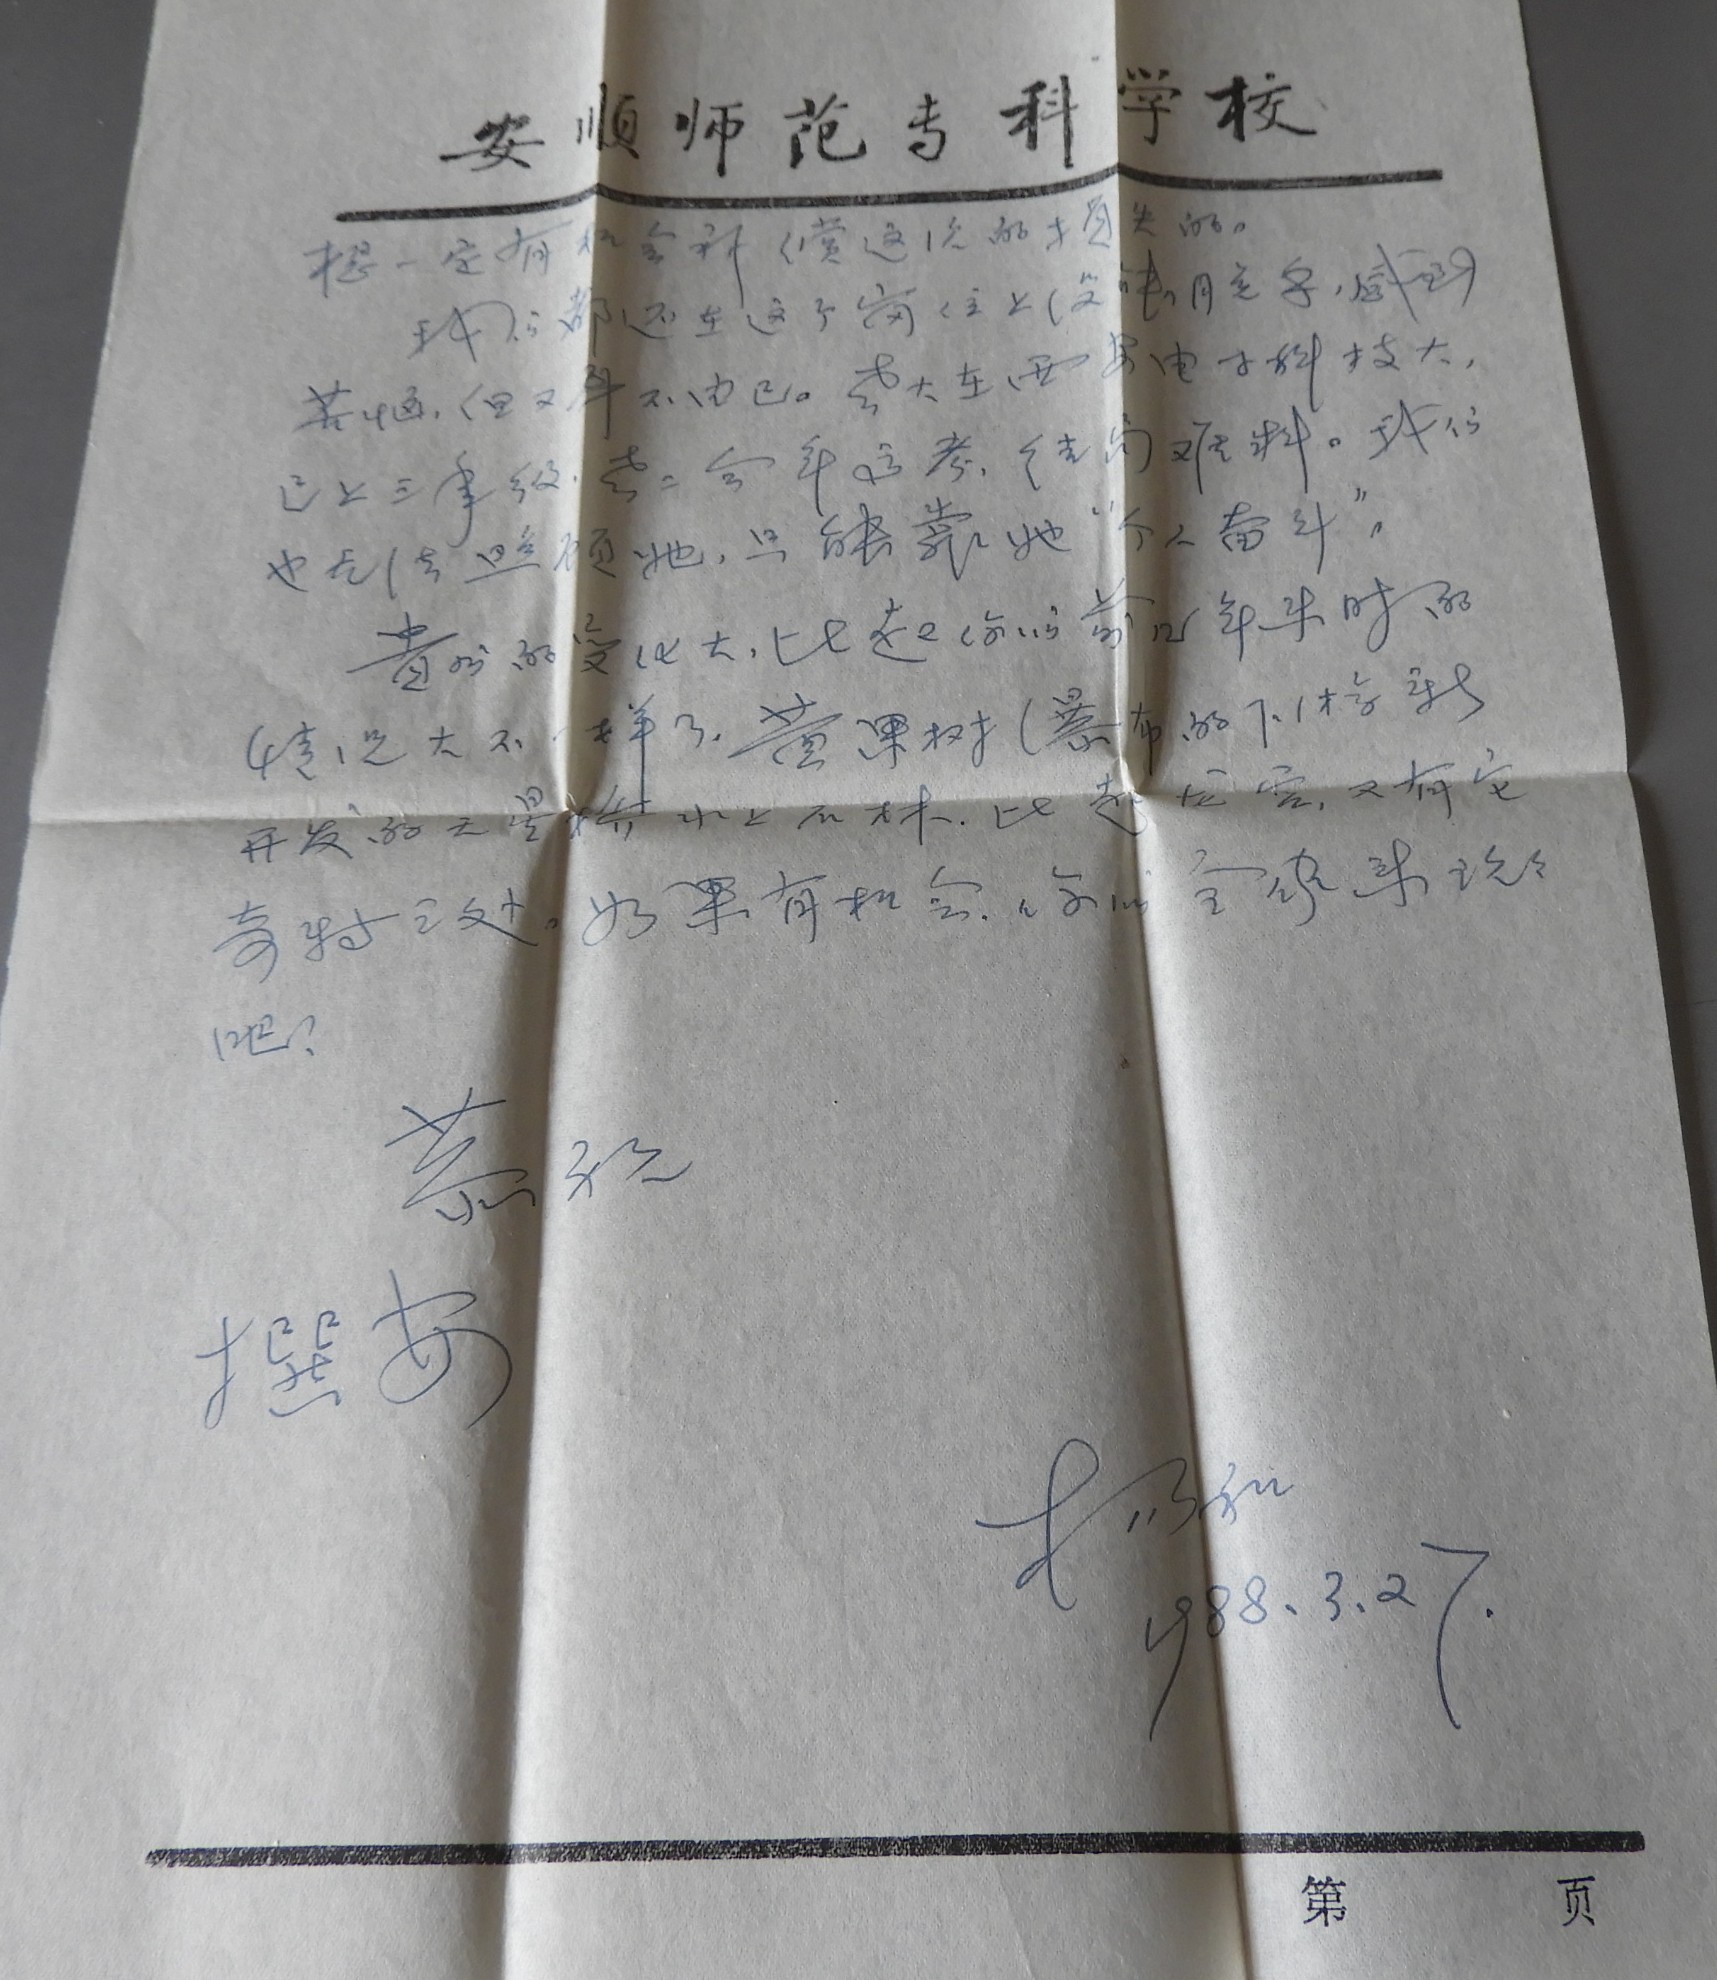 安顺师范专科学校
想一定有机会补偿这次的损失的。
我们都还在这个岗位上没能用充分,感到
苦恼,但又身不由己。老大在西安电子科技大,
已上三年级,老二今年高考,结局难料。我们
也无法照顾她,只能靠她“个人奋斗”。
贵州的变化大,比起你们前几年来时的
情况大不一样了。黄果树瀑布的下游新
开发的天星桥水上石林,比起,又有它
奇特之处。如果有机会,你们全家来玩玩
吧?
恭祝
撰安
1988.3.27.
第 页